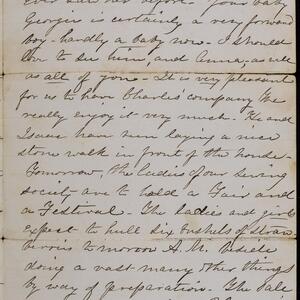 ever saw her before. Your baby
Georgie is certainly a very forward
boy - hardly a baby now - I should
love to see him, and Anna, as well
as all of you - It is very pleasant
for us to have Charlie's company, We
really enjoy it very much. He and
Isaac have him laying a nice
stone walk in front of the house -
Tomorrow, the ladies of our sewing
society are to hold a Fair and
a Festival - The ladies and girls
expect to hull six bushels of straw
berries to morrow A.M. beside
doing a vast many other things
by way of preparation. The Sale